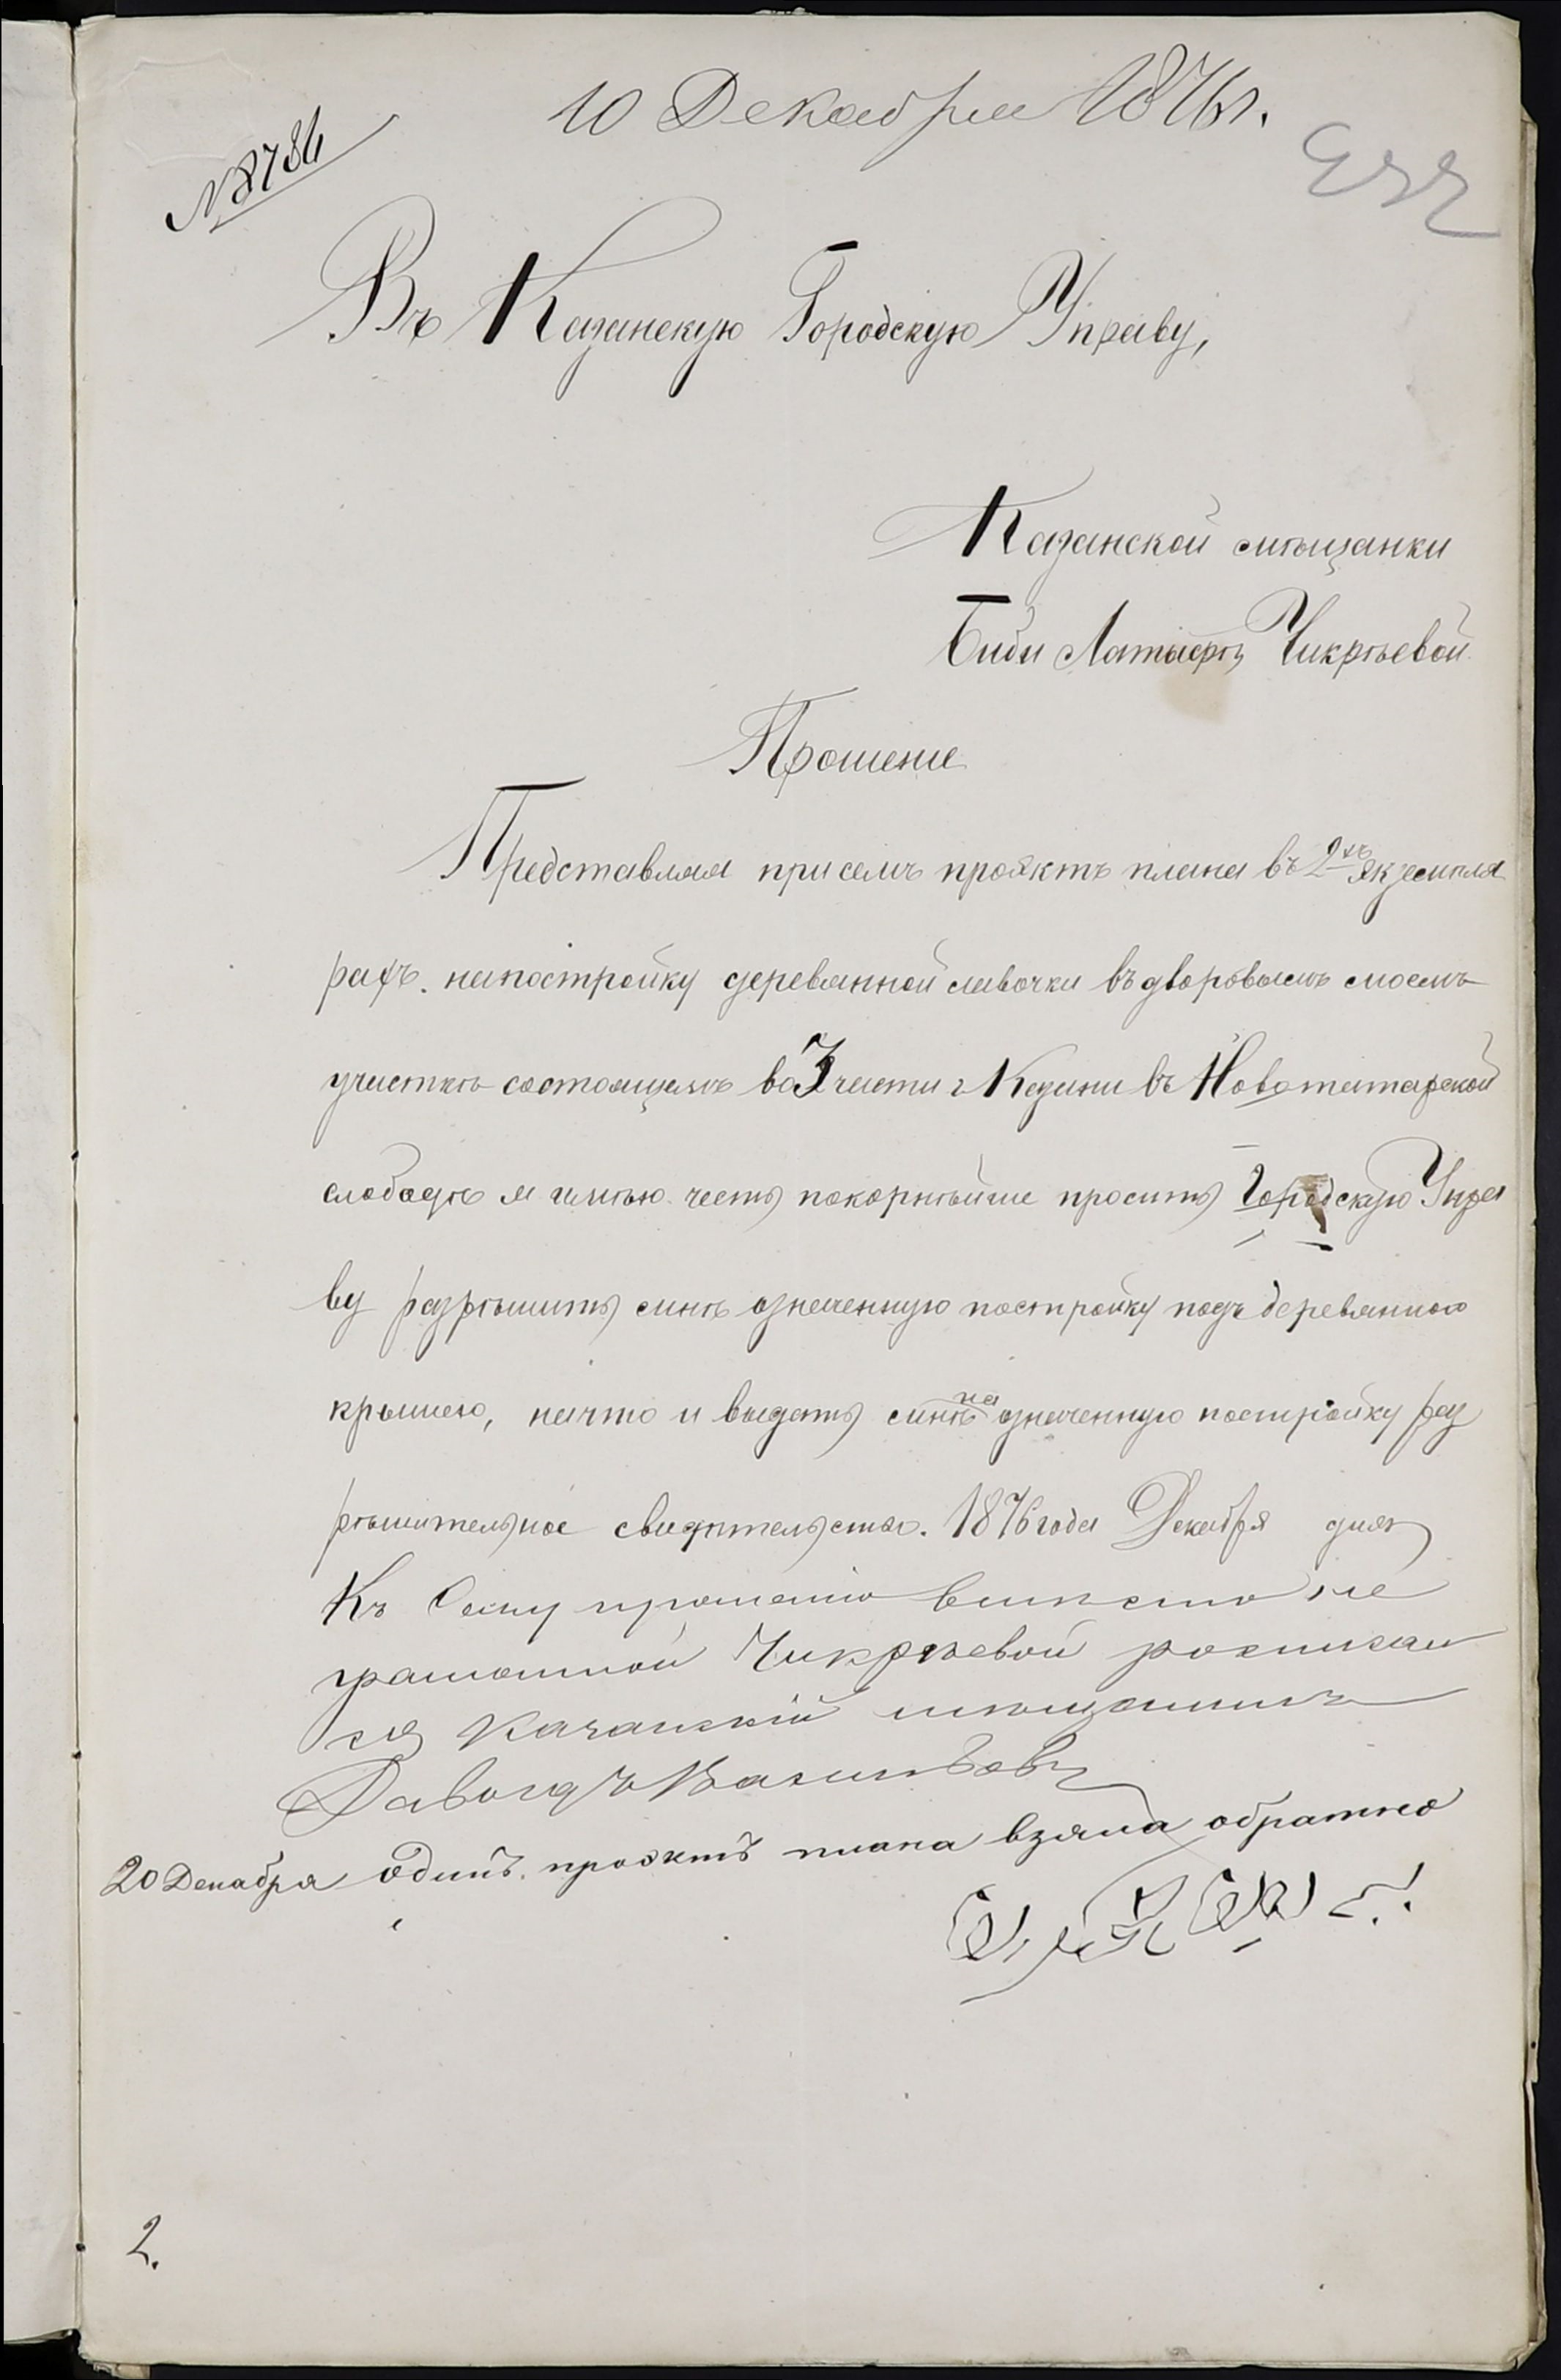 10 Декабря 1876 г.
№ 8784
Въ Казанскую Городскую Управу,
Казанской мѣщанки
Биби Латыфы Чикрѣевой
Прошение
Представляя при семъ проэктъ плана въ 2хъ экземпля
рахъ. на постройку деревянной лавочки въ дворовымъ моемъ
участкѣ состоящемъ во 3 части г Казани въ Новотатарской
слободѣ я имѣю честь покорнѣйше просить Городскую Упра
ву разрѣшить мнѣ означенную постройку подъ деревянною
крышею, на что и выдать мнѣ на означенную постройку раз
рѣшительное свидѣтельство. 1876 года Декабря дня
Къ сему прошенію вмѣсто не
грамотной Чикрѣевой росписал
ся Казанскій мѣщанинъ
20 Декабря Одинъ проэктъ плана взяла обратно
2.